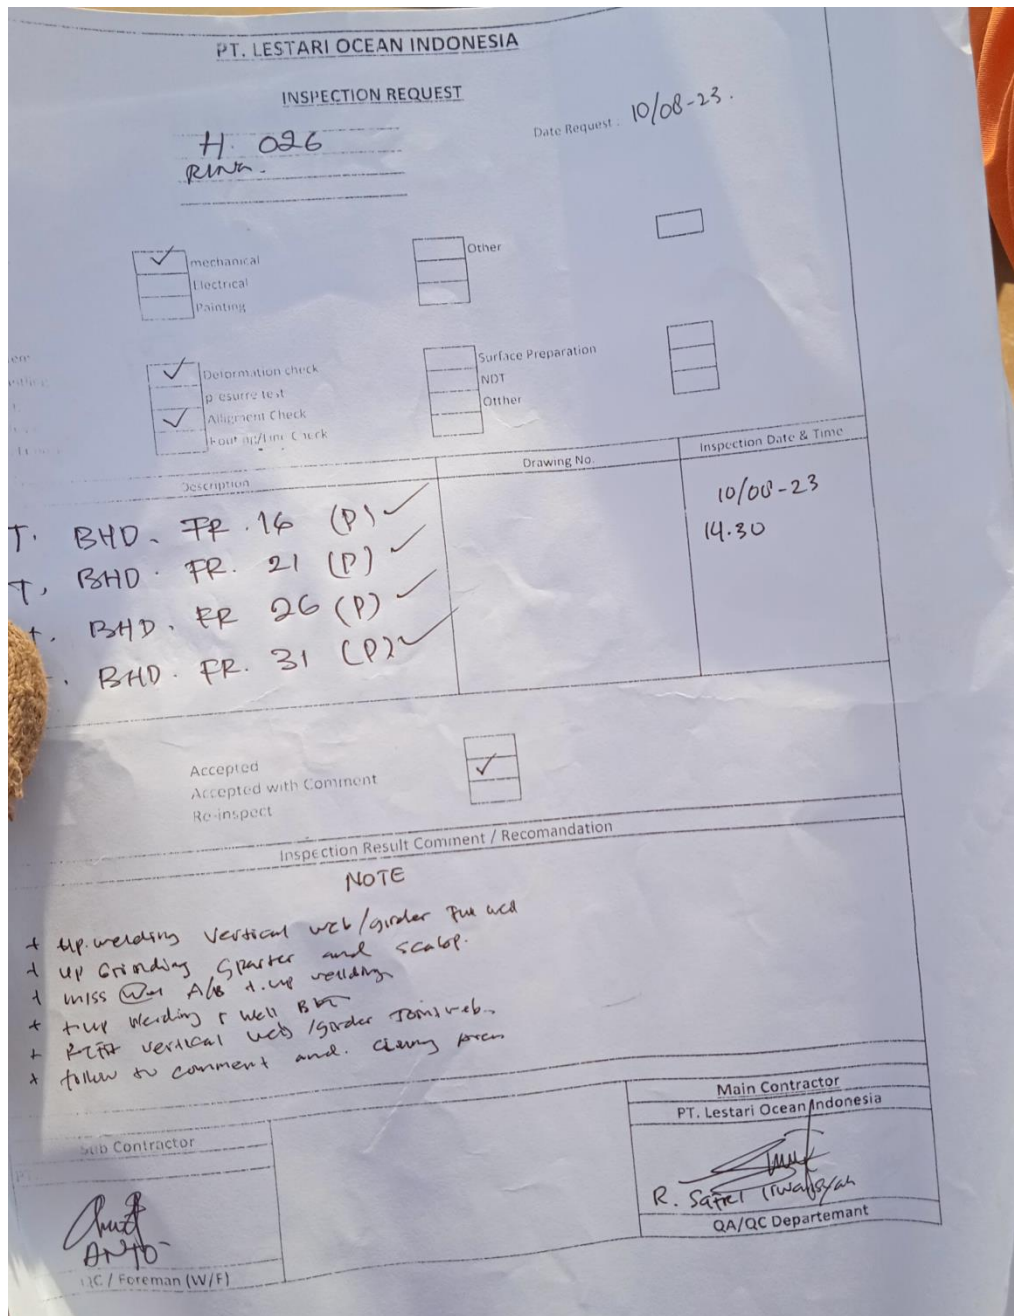 PT. LESTARI OCEAN INDONESIA
INSPECTION REQUEST
Date Request : 10/08-23.
H. 026
RINA.
mechanical
Electrical
Painting
Other
Deformation check
presurre test
Alligment Check
Surface Preparation
NDT
Otther
Description
Drawing No.
Inspection Date & Time
T. BHD. FR. 16 (P)
T. BHD. FR. 21 (P)
BHD. FR 26 (P)
BHD. FR. 31 (P)
10/08-23
14.30
Accepted
Accepted with Comment
Re-inspect
Inspection Result Comment / Recomandation
NOTE
+ up.welding vertical web/girder
+ up Grinding and scalop.
+ miss A/B t.up welding
+ t.up welding
+ vertical web/girder
+ follow to comment and.
Sub Contractor
ANTO
QC / Foreman (W/F)
Main Contractor
PT. Lestari Ocean Indonesia
R. Safrel Irwansyah
QA/QC Departemant